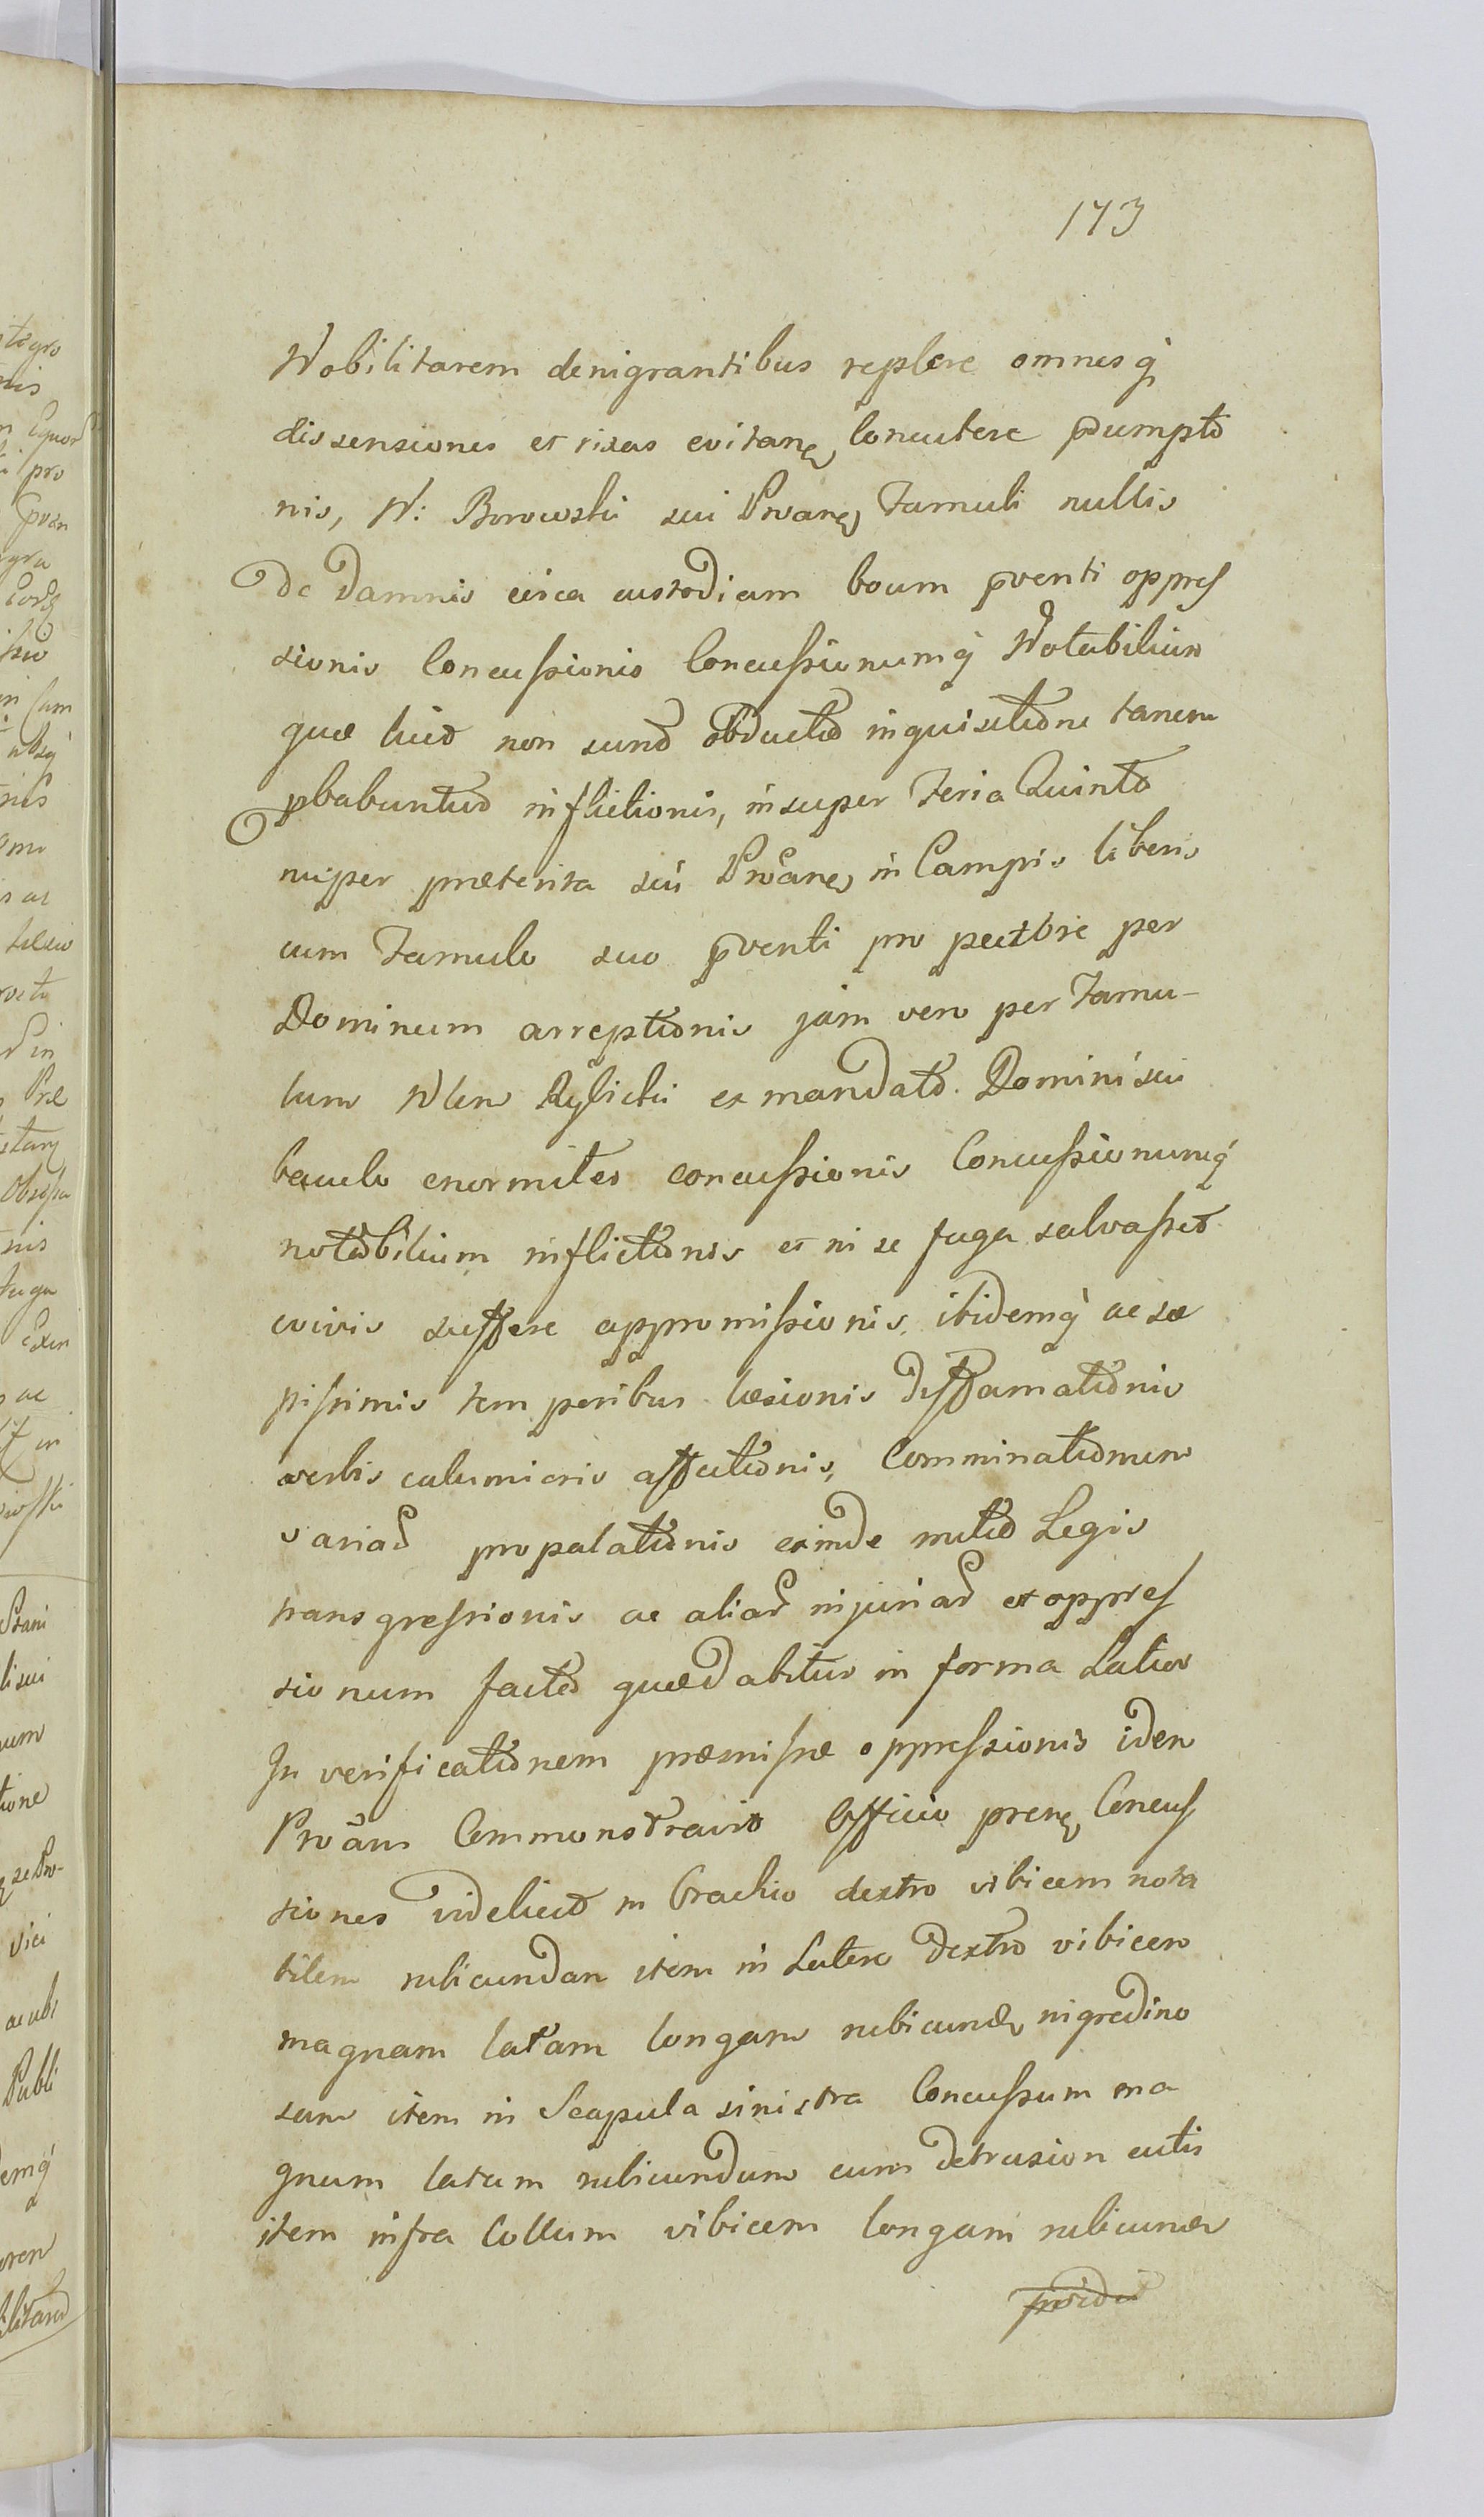 173
Nobilitatem denigrantibus replere omnesq́
dissensiones et rixas evitanę concutere p̃sumpto
nis, N: Borowski sui Pr̃ãnę Famuli nullis
De Damnis circa custodiam boum p̃venti oppres
sionis Concussionis Concussionumq́ Notabilium
quæ licet non sunt obductæ inquisitione tamen
pbabuntur inflictionis, insuper Feria Quinta
nuper præterita sui Prõanę in Campis liberis
cum Famulo suo p̃venti pro pectore per
Dominum arreptionis jam vero per Famu-
lum Nlem Rylicki ex mandato Domini sui
baculo enormiter concussionis Concussionumq́
notabilium inflictionis et ni se fuga salvasset
e vivis sufferre appromissionis, ibidemq́ ac sæ
pissimis temporibus læsionis diffamationis
verbis calumioris affectionis, Comminationum
variar propalationis exinde mulctæ Legis
transgressionis ac aliar injuriar et oppres
sionum factæ quæ dabitur in forma Latior
In verificationem præmissæ oppressionis idem
Prõans Commonstravit Officio prænę Concus
siones videlicet in brachio dextro vibicem nota
bilem rubicundam item in Latere dextro vibicem
magnam latam longam rubicundę nigredino
sam item in Scapula sinistra Concussum ma
gnum latum rubicundum cum detrusion cutis
item infra Collum vibicem longam rubicundę